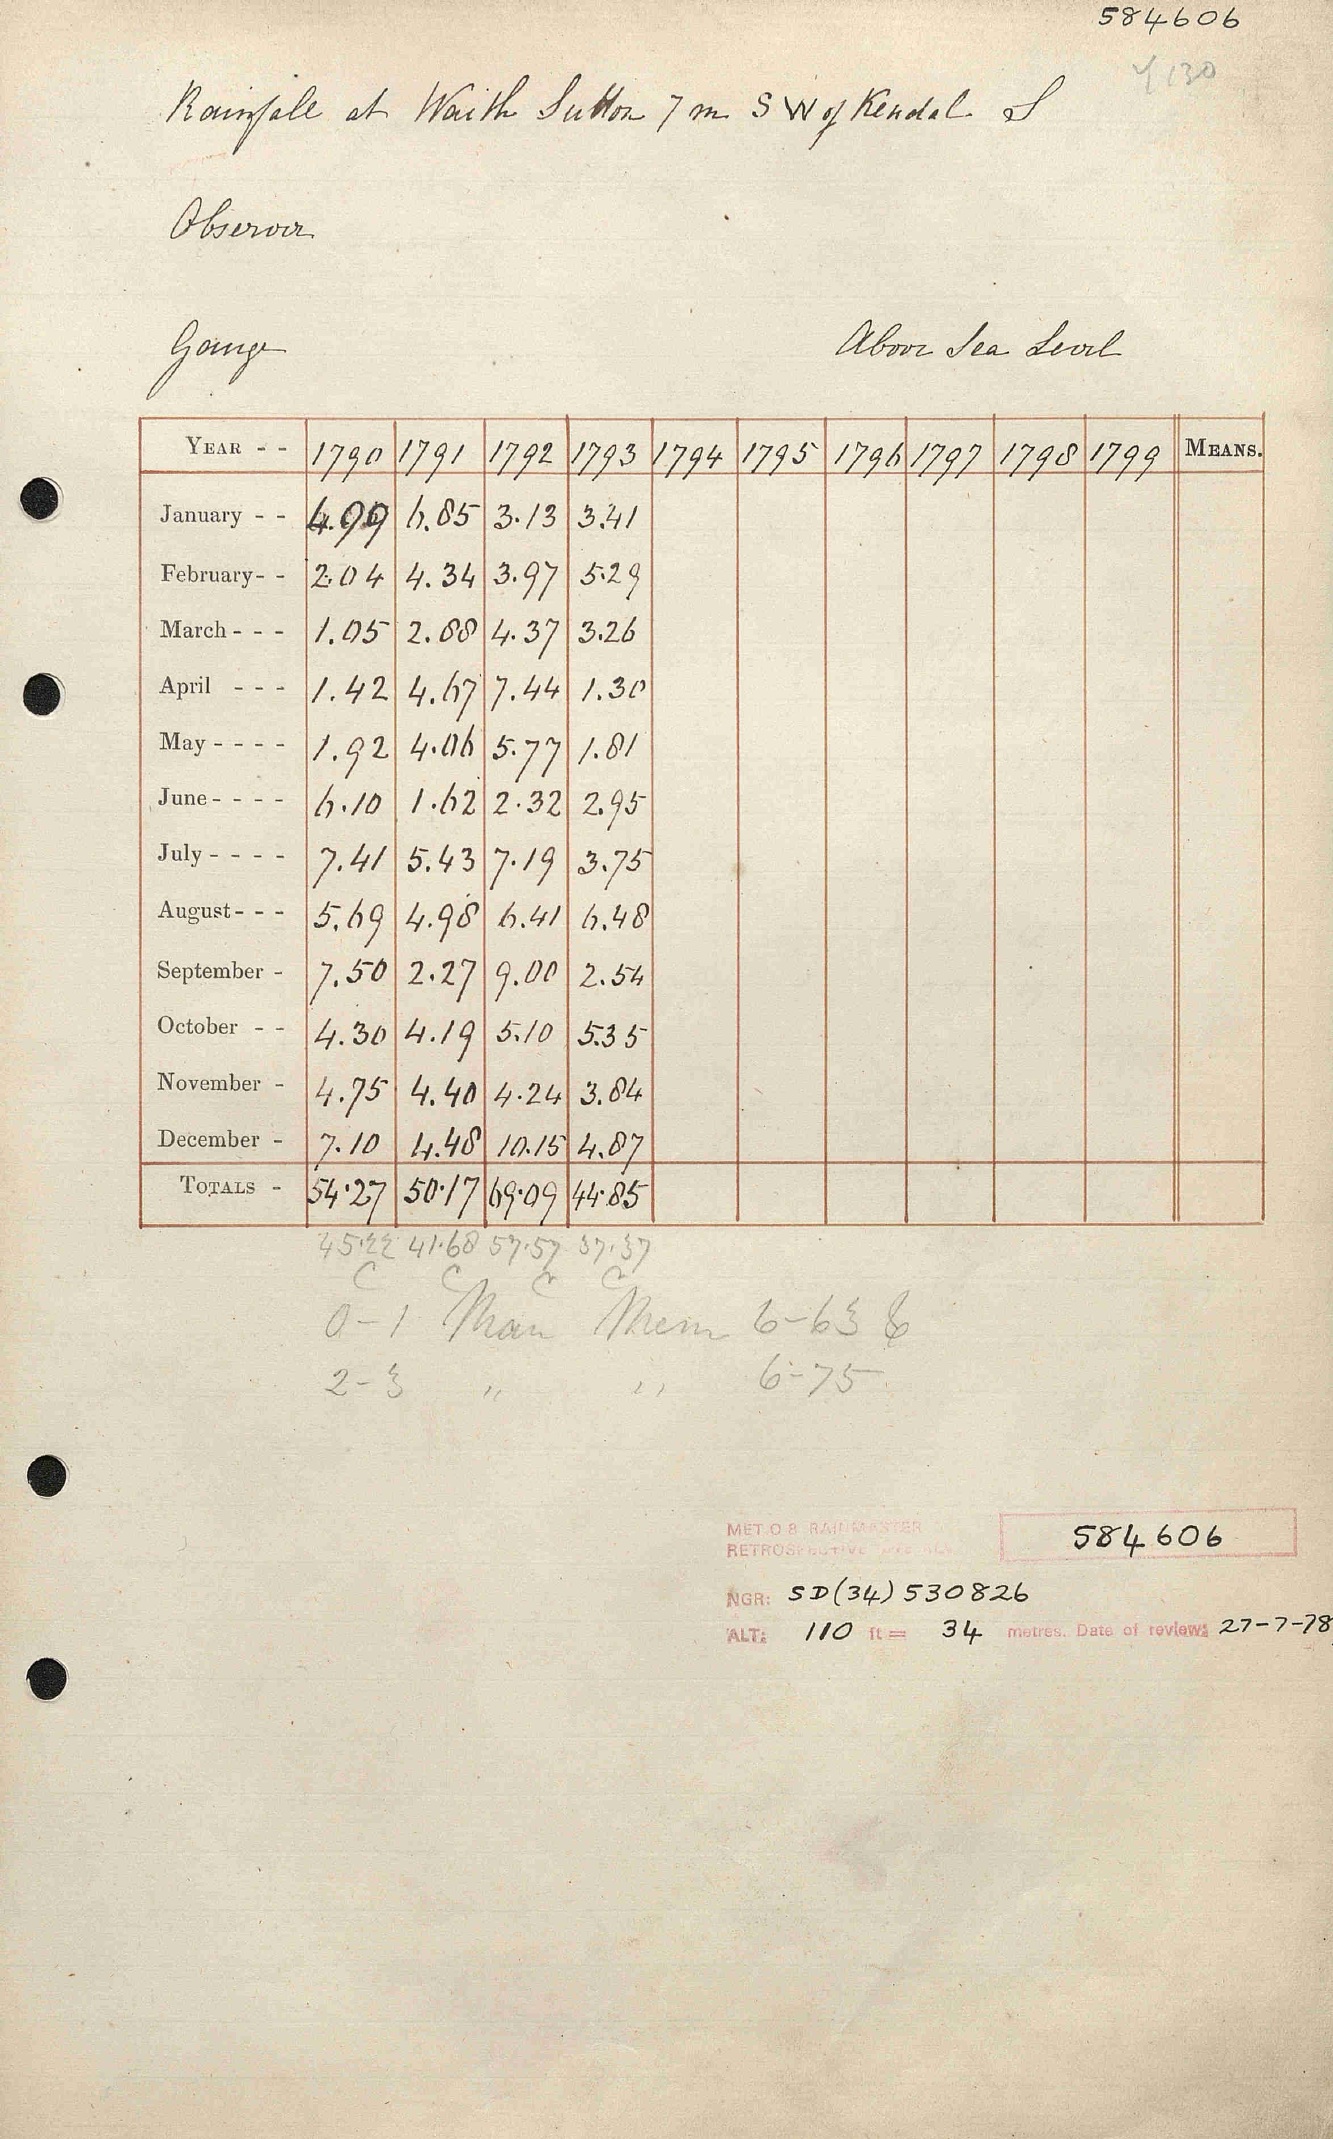 584606
4/130
Rainfall at Waith Sutton 7 m SW of Kendal S
Observer
Gauge Above Sea Level
YEAR - - 1790 1791 1792 1793 1794 1795 1796 1797 1798 1799 MEANS.
January - - 4.99 6.85 3.13 3.41
February - - 2.04 4.34 3.97 5.29
March - - - 1.05 2.88 4.37 3.26
April - - - 1.42 4.67 7.44 1.30
May - - - - 1.92 4.06 5.77 1.81
June - - - - 6.10 1.62 2.32 2.95
July - - - - 7.41 5.43 7.19 3.75
August - - - 5.69 4.98 6.41 6.48
September - 7.50 2.27 9.00 2.54
October - - 4.30 4.19 5.10 5.35
November - 4.75 4.40 4.24 3.84
December - 7.10 4.48 10.15 4.87
TOTALS - 54.27 50.17 69.09 44.85
45.22 41.68 57.57 37.37
C C C C
0-1 Man Mem 6-63
2-3 " " 6-75
MET O 8 RAINMASTER
RETROSPECTIVE
584606
NGR: SD(34)530826
ALT: 110 ft = 34 metres. Date of review: 27-7-78